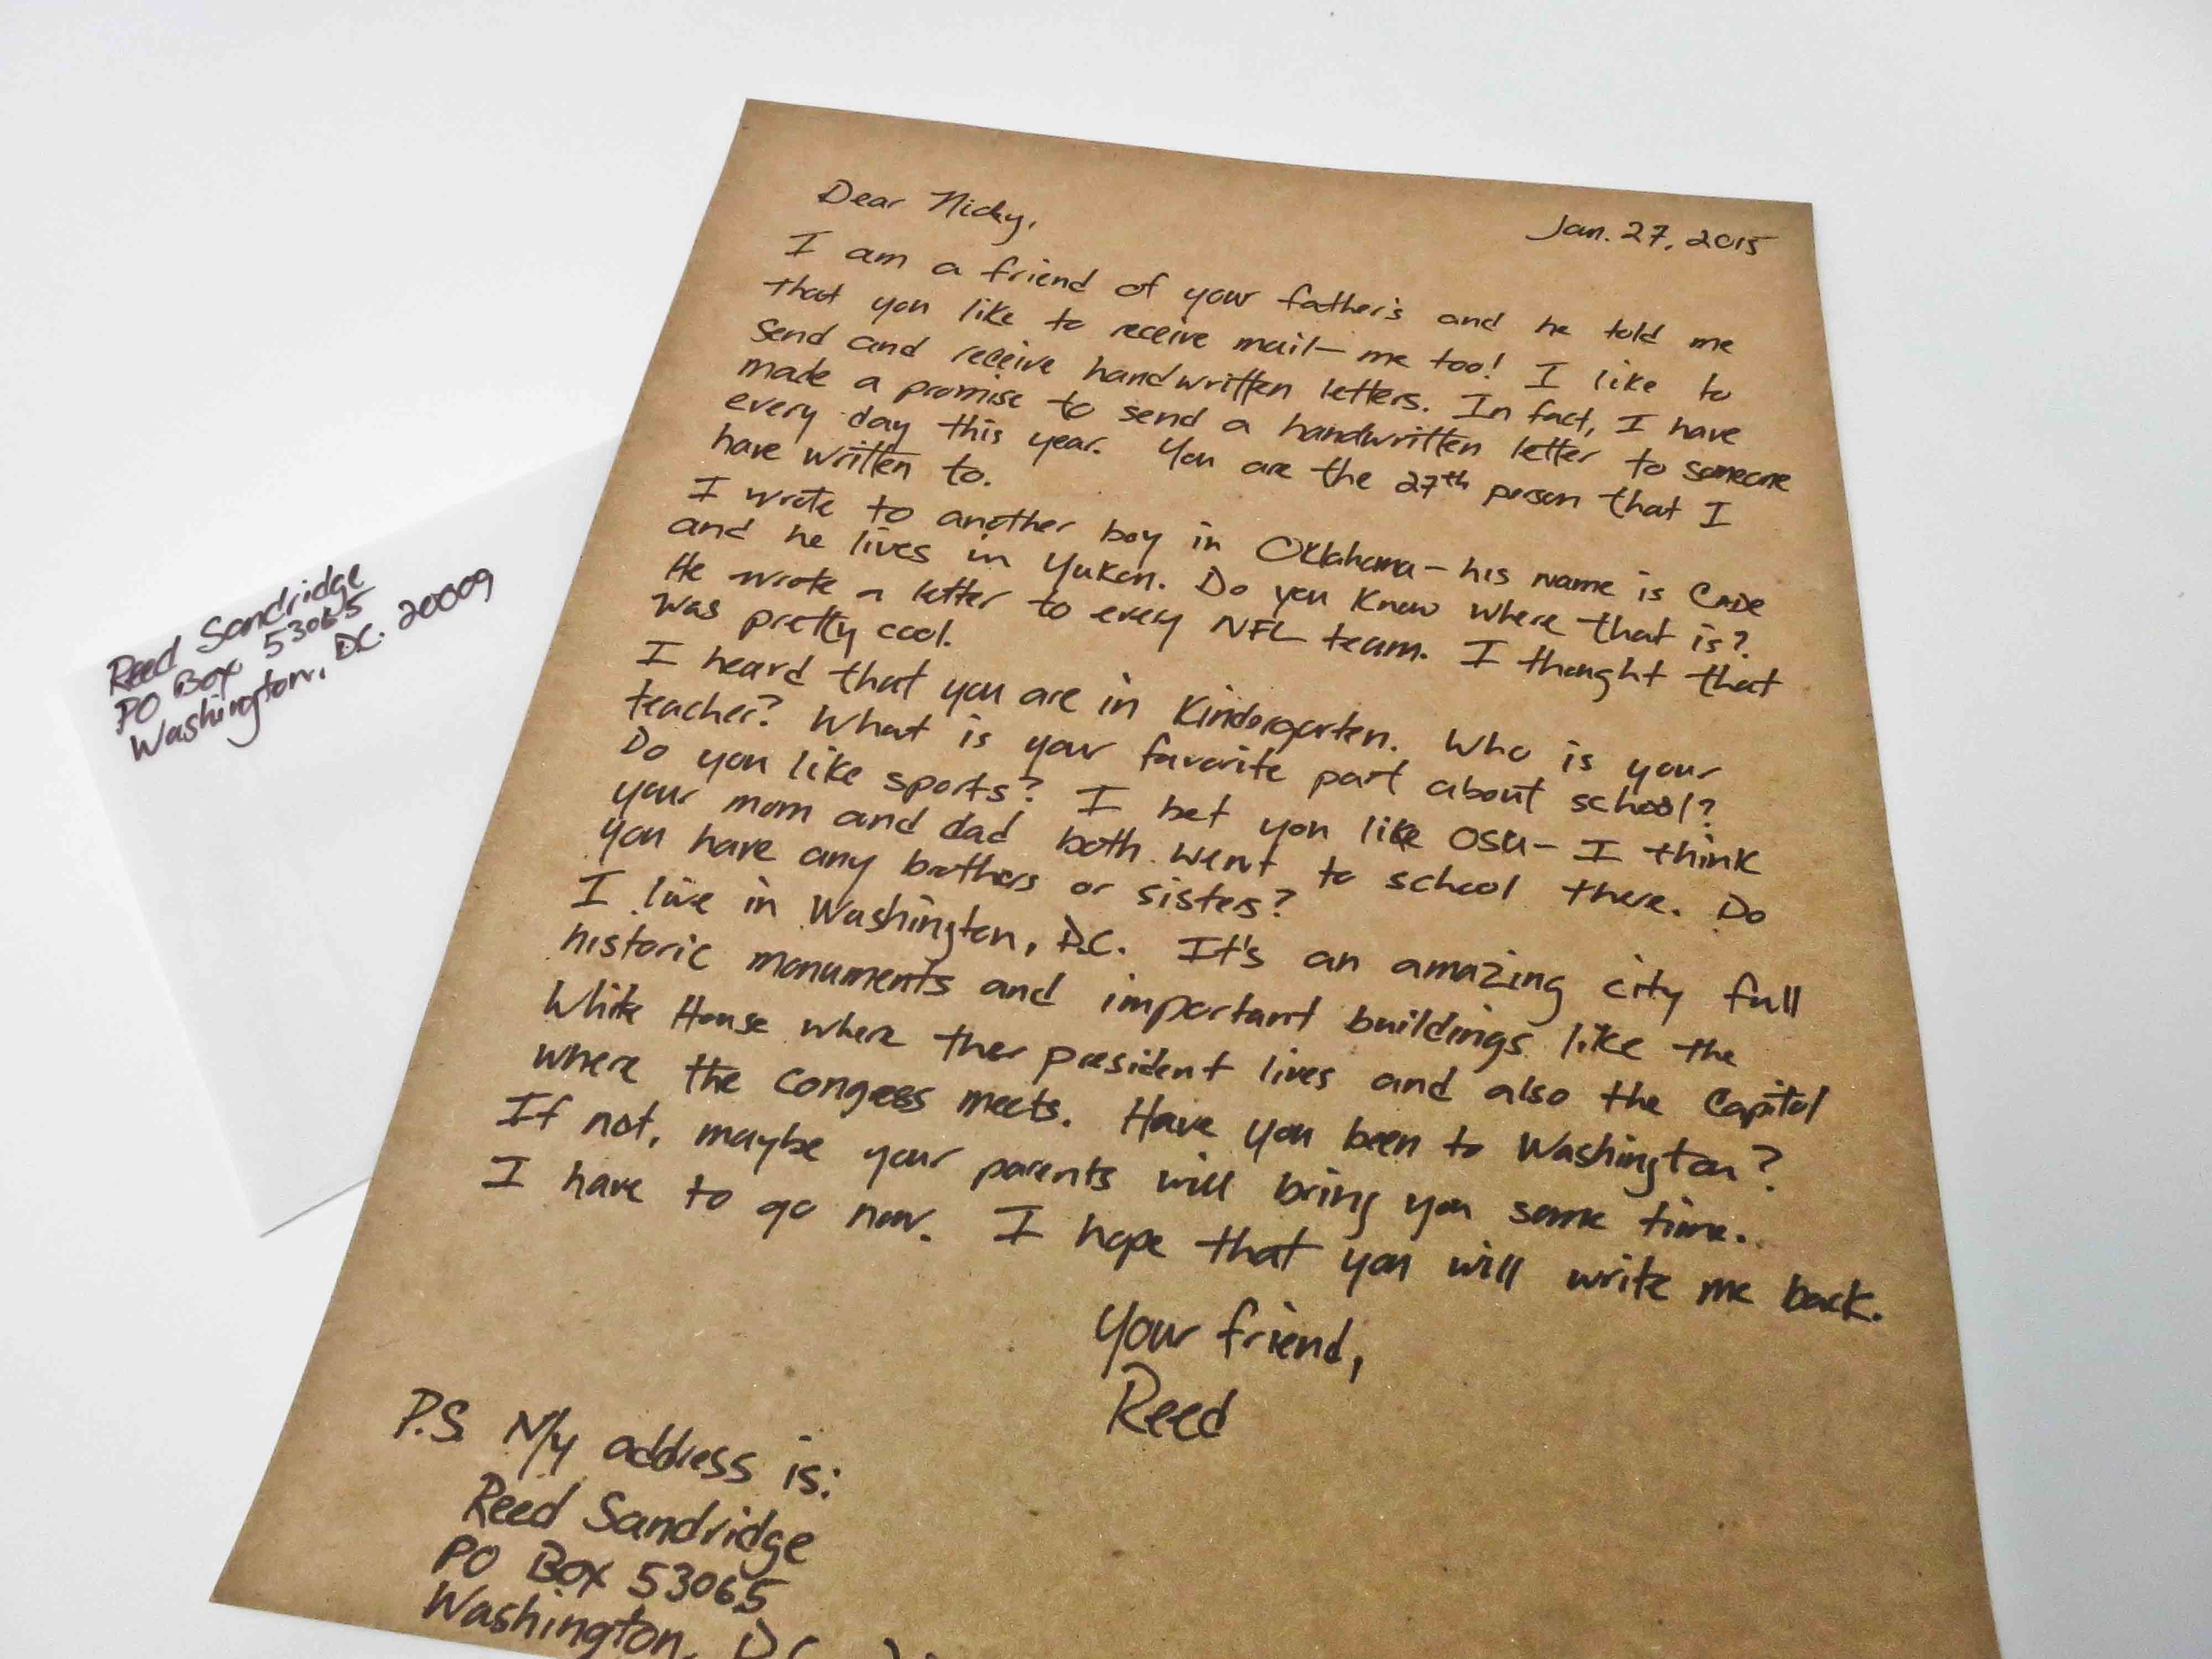 Jan. 27, 2015
Dear Nicky,
I am a friend of your father's and he told me
that you like to receive mail— me too! I like to
send and receive handwritten letters. In fact, I have
made a promise to send a handwritten letter to someone
every day this year. You are the 27th person that I
have written to.
I wrote to another boy in Oklahoma - his name is Cade
and he lives in Yukon. Do you know where that is?
He wrote a letter to every NFL team. I thought that
was pretty cool.
I heard that you are in Kindergarten. Who is your
teacher? What is your favorite part about school?
Do you like sports? I bet you like OSU - I think
your mom and dad both went to school there. Do
you have any brothers or sisters?
I live in Washington, D.C. It's an amazing city full
historic monuments and important buildings like the
White House where the president lives and also the Capitol
where the Congress meets. Have you been to Washington?
If not, maybe your parents will bring you some time.
I have to go now. I hope that you will write me back.
Your friend,
Reed
P.S. My address is:
Reed Sandridge
PO Box 53065
Washington, DC
Reed Sandridge
PO Box 53065
Washington, DC. 20009